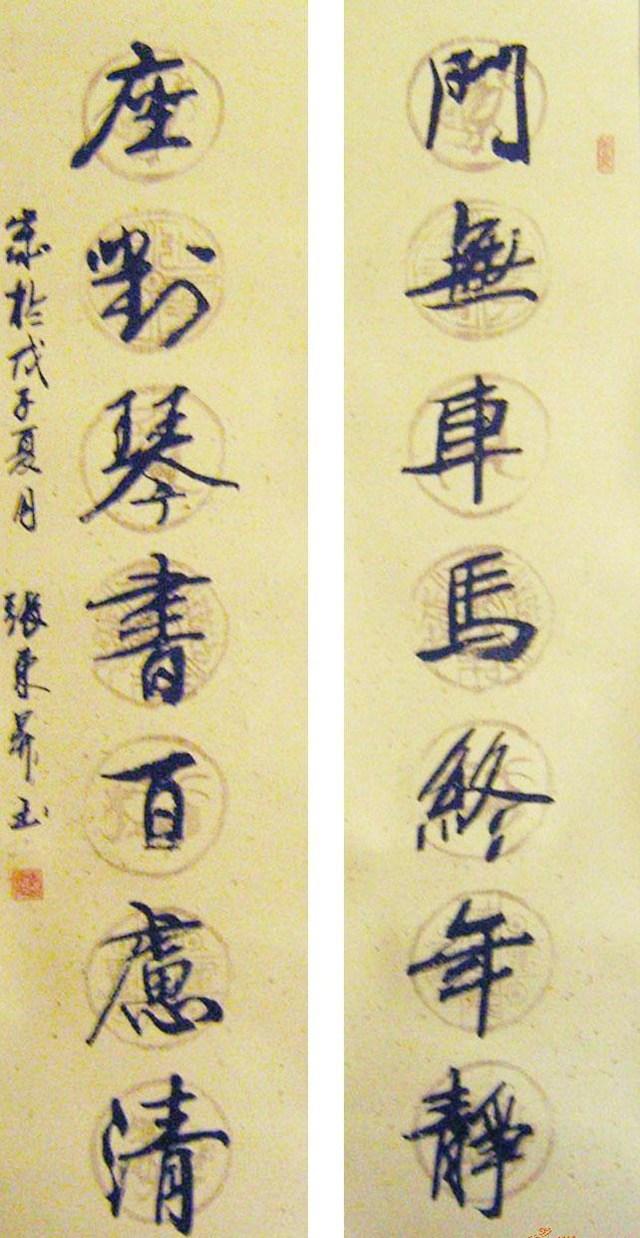 門無車馬終年靜
座對琴書百慮清
歲於戊子夏月 張東昇書